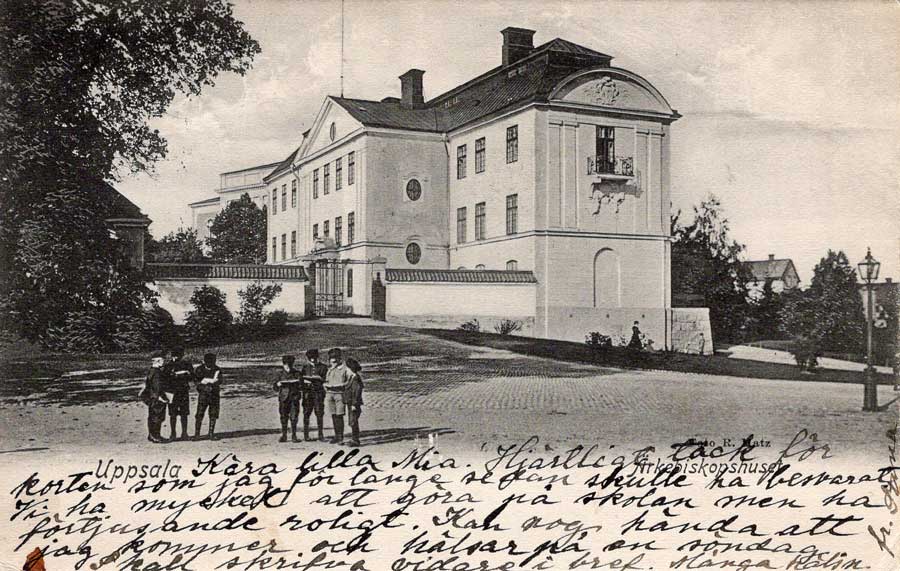 Foto R. Matz
Uppsala Ärkebiskopshuset
Kära lilla Mia. Hjärtligt tack för
korten som jag för länge sedan skulle ha besvarat
Vi ha mycket att göra på skolan men ha
förtjusande roligt. Kan nog hända att
jag kommer och hälsar på en söndag
Skall skrifva vidare i bref. Många hälsn.
fr. Anna